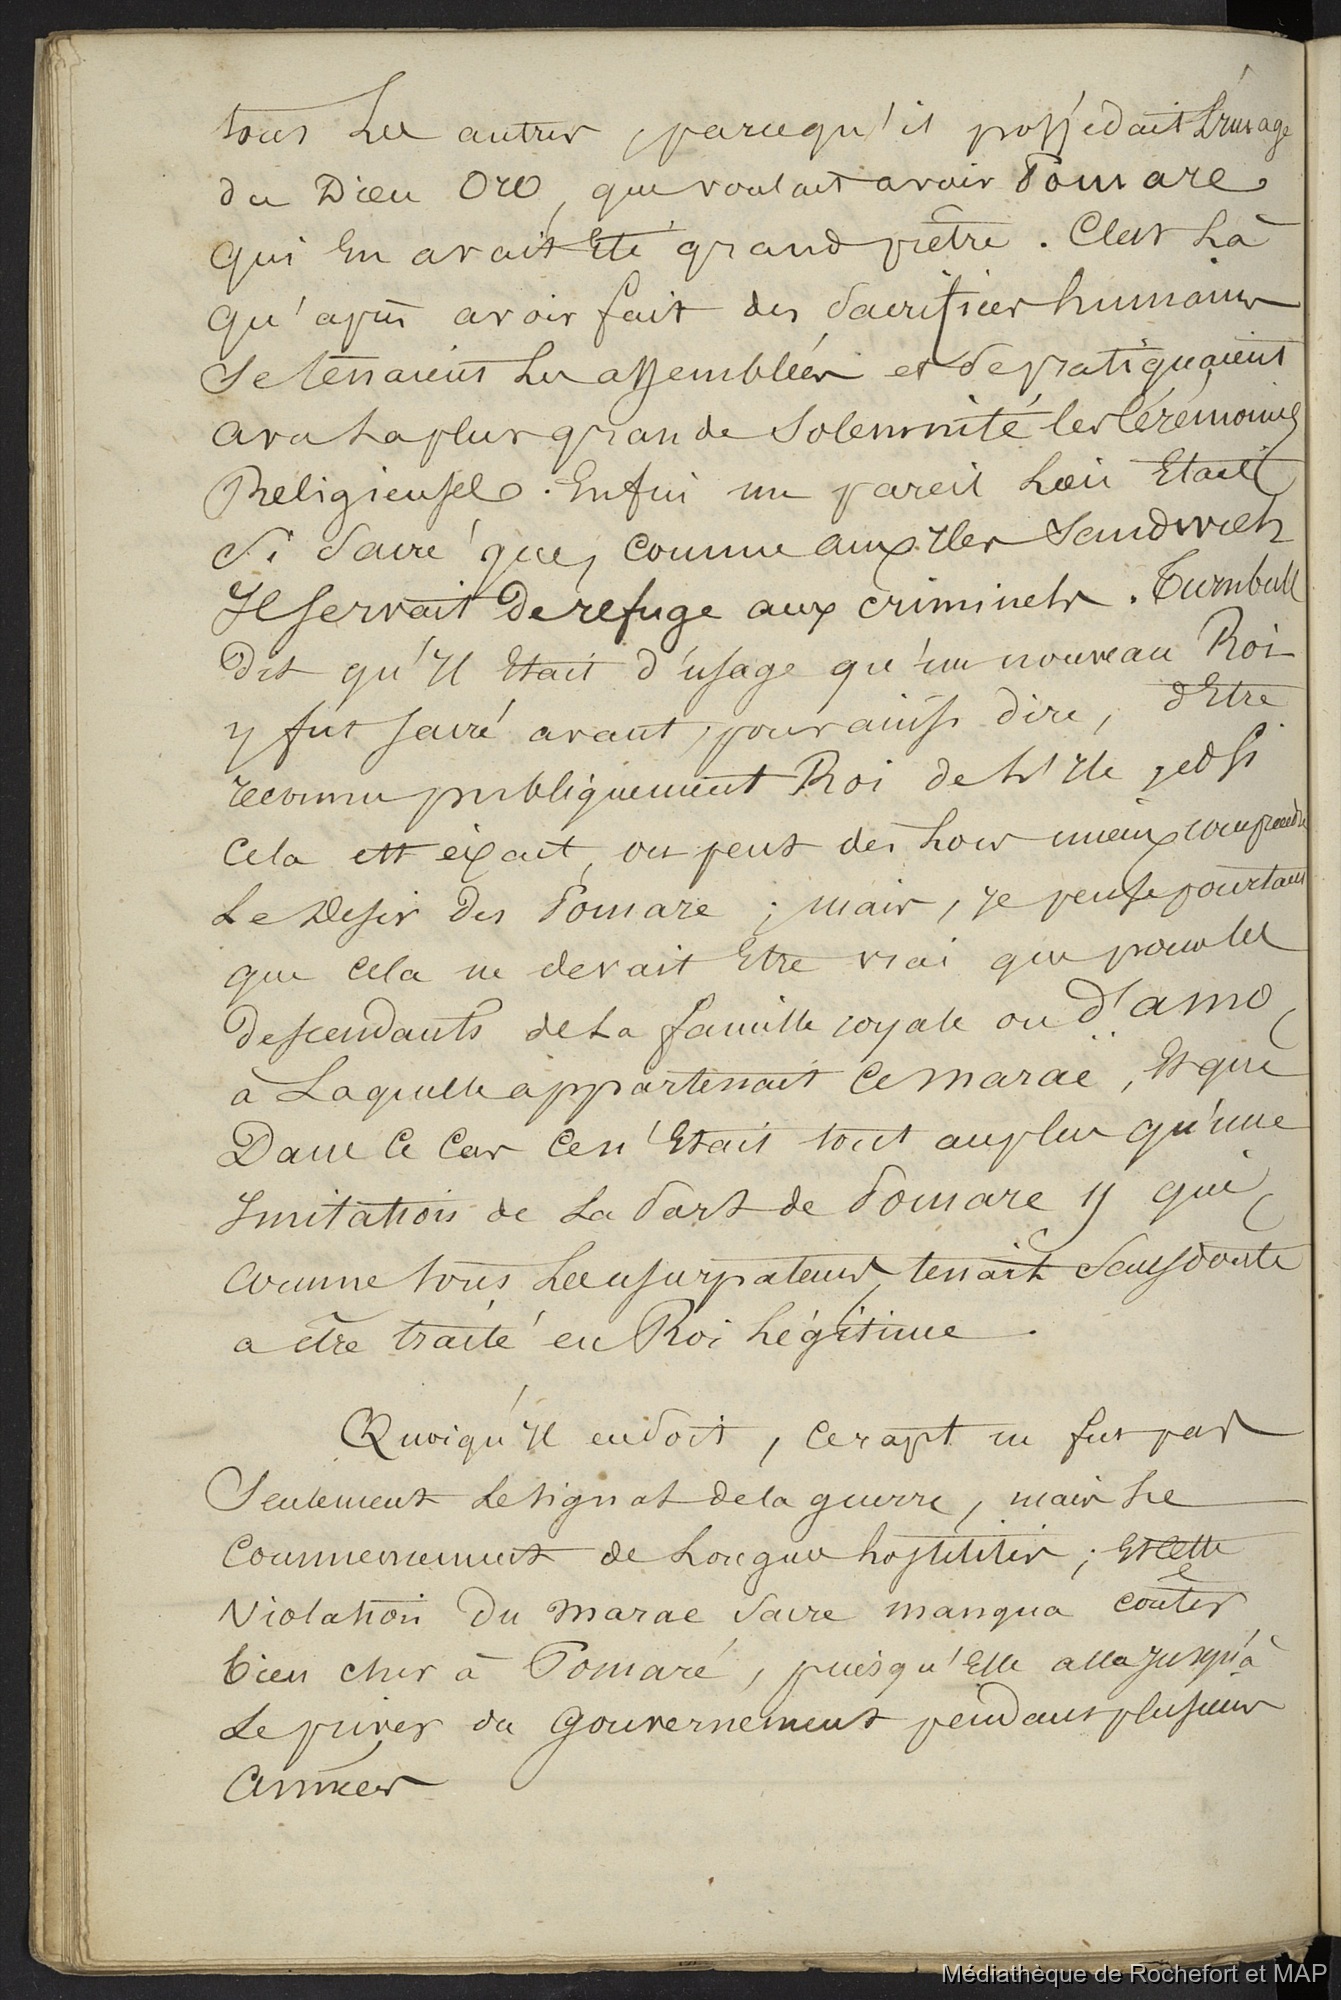 tous Les autres, parcequ'il possédait L'Image
du Dieu Oro, que voulait avoir Pomare
qui En avait Eté grand prêtre. C'est Là
qu'après avoir fait des Sacrifices humains
Se tenaient Les assemblées et Se pratiquaient
avec La plus grande Solemnité les Cérémonies
Religieuses. Enfin un pareil Lieu Etait
Si Sacré que, comme aux Iles Sandwich
Il servait De refuge aux criminels. Turnbull
Dit qu'Il Etait d'usage qu'un nouveau Roi
y fut sacré avant, pour ainsi dire, d'Etre
reconnu publiquement Roi de L'Ile, et Si
Cela est éxact, on peut dès Lors mieux comprendre
Le Desir des Pomare; mais, Je pense pourtant
que cela ne devait Etre vrai que pour les
descendants de La famille royale ou d'amo,
à Laquelle appartenait Ce maraë, Et que
Dans Ce Cas Ce n'Etait tout au plus qu'une
Imitation de La Part de Pomare II qui,
comme tous Les usurpateurs, tenait Sans doute
a être traité en Roi Légitime.
Quoiqu'Il en Soit, Ce rapt ne fut pas
Seulement Le signal de la guerre, mais Le
Commencement de Longues hostilités; Et Cette
Violation du marae Sacre manqua couter
bien cher à Pomaré, puisqu'Elle alla Jusqu'à
Le priver du Gouvernement pendant plusieurs
Années
Médiathèque de Rochefort et MAP